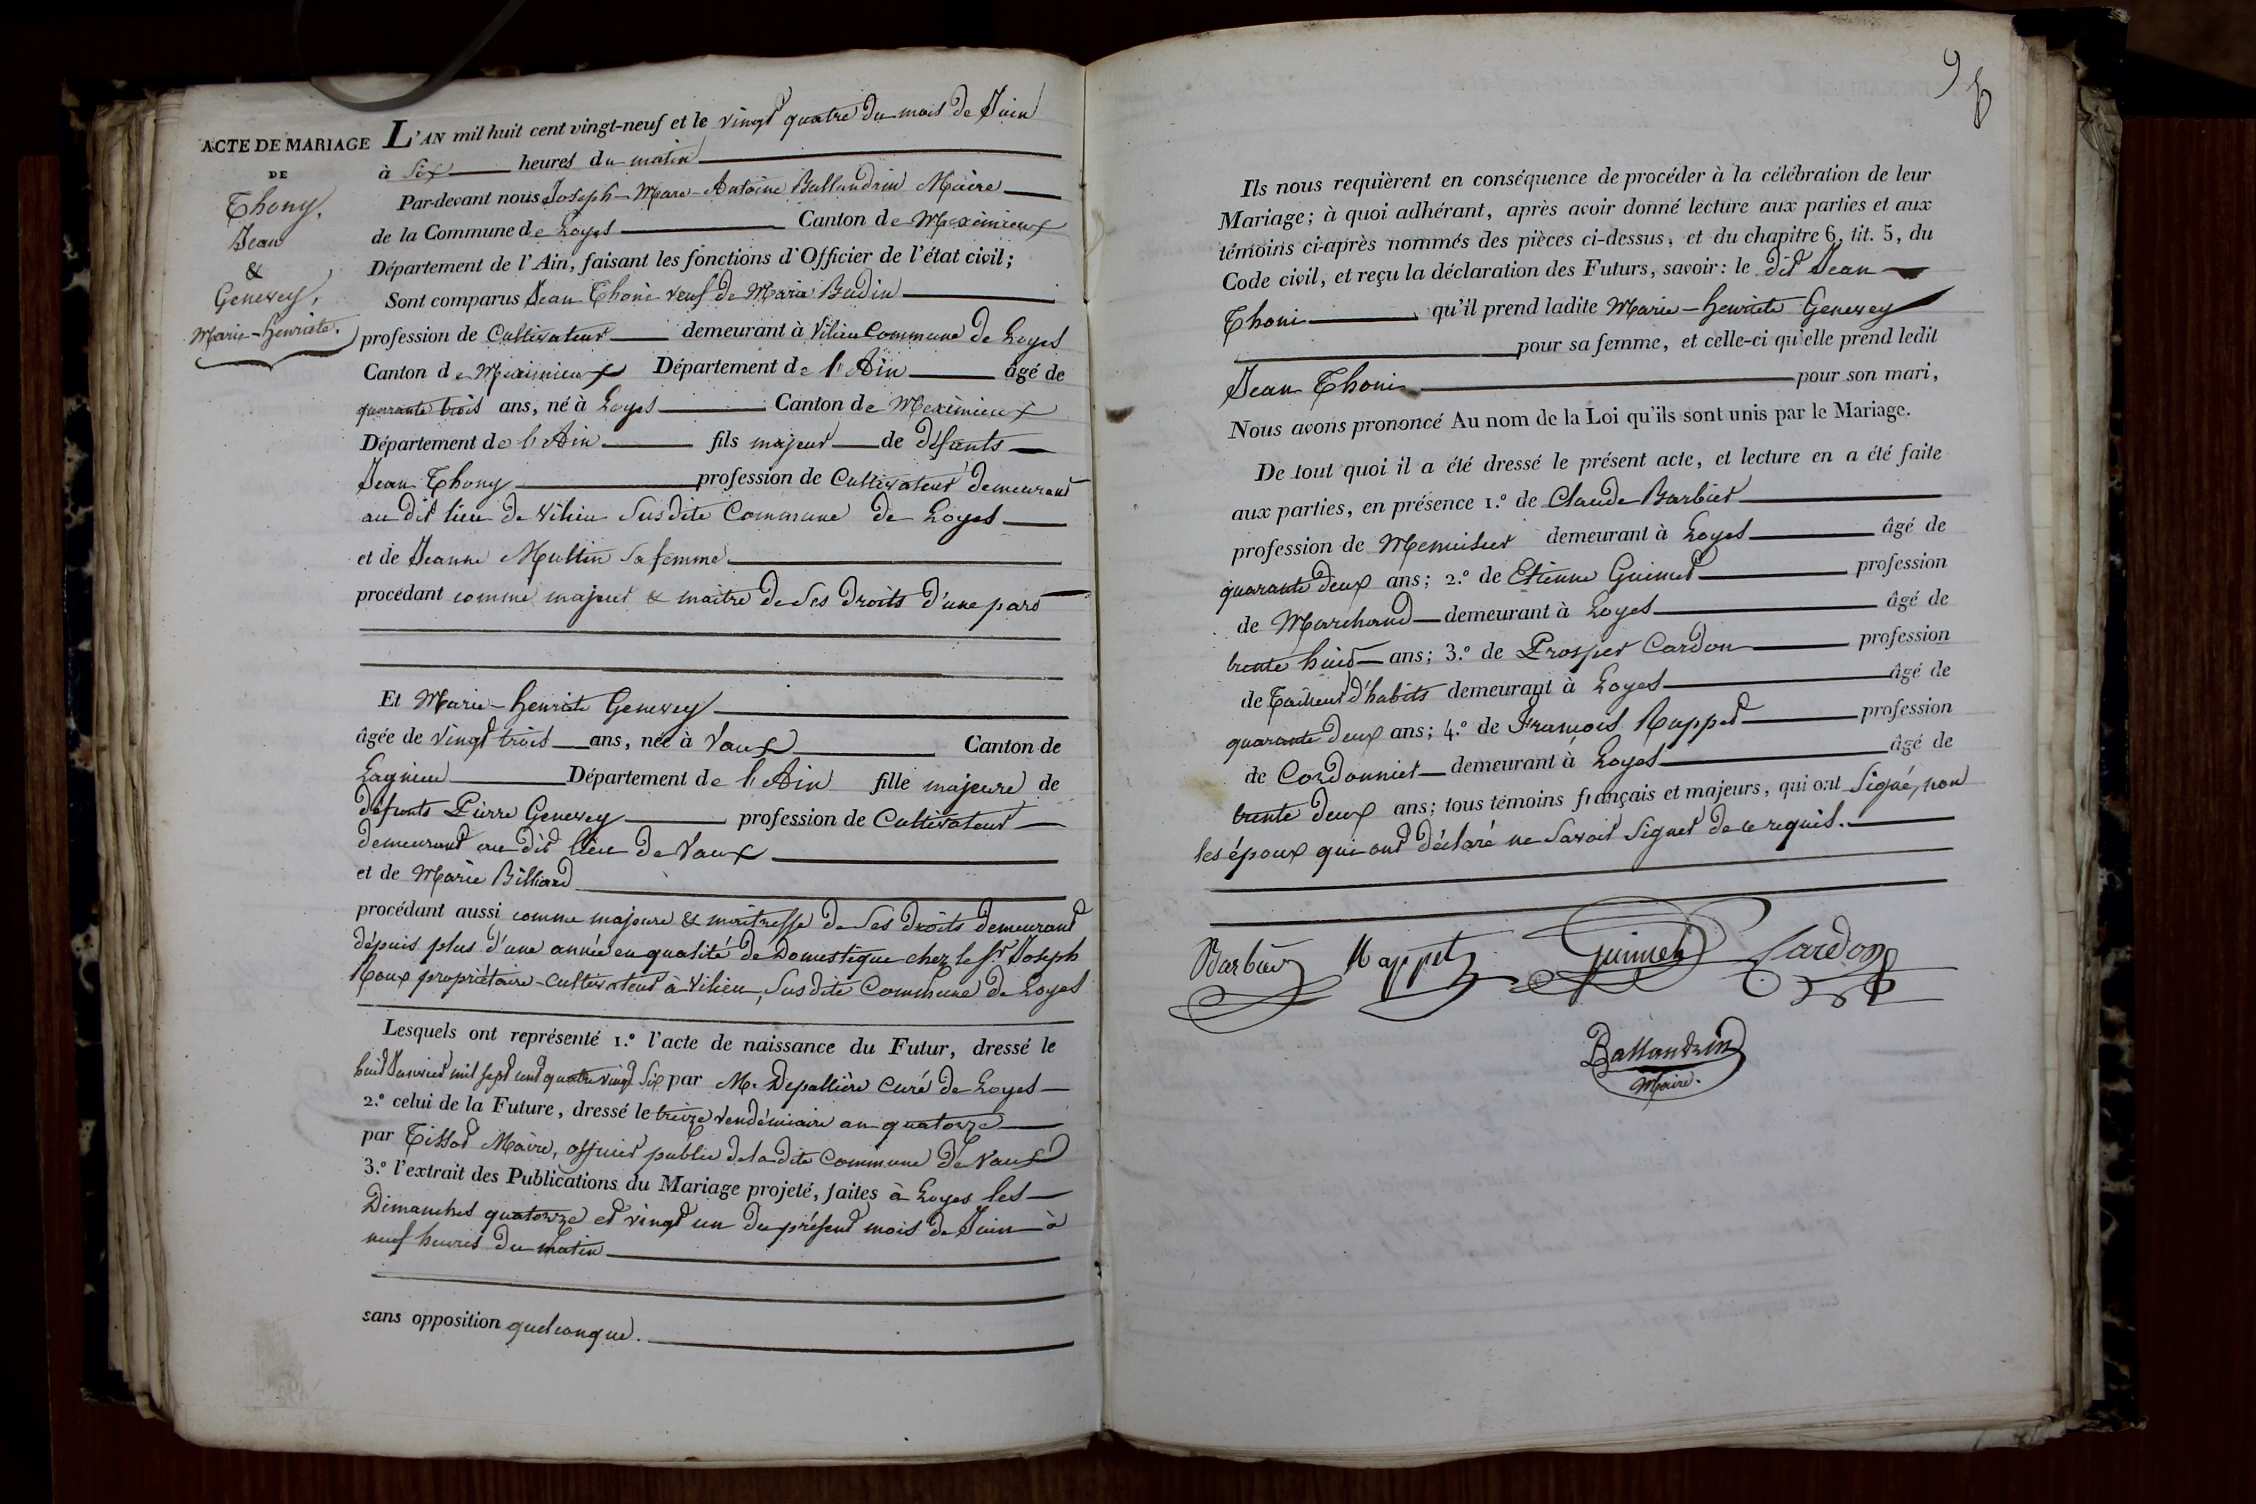 ACTE DE MARIAGE
DE
Thony,
Jean
&
Genevey,
Marie-henriete.
L'AN mil huit cent vingt-neuf et le vingt quatre du mois de Juin
à Six heures du matin
Par-devant nous Joseph-Marc-Antoine Ballandrin Maire
de la Commune de Loyes Canton de Meximieux
Département de l'Ain, faisant les fonctions d'Officier de l'état civil;
Sont comparus Jean Thoni veuf de Marie Budin
profession de Cultivateur demeurant à Vilieu Commune de Loyes
Canton de Meximieux Département de l'Ain âgé de
quarante trois ans, né à Loyes Canton de Meximieux
Département de l'Ain fils majeur de défunts
Jean Thony profession de Cultivateur demeurant
au dit lieu de Vilieu Susdite Commune de Loyes
et de Jeanne Mullin Sa femme
procédant comme majeur & maître de Ses droits d'une part
Et Marie-henriete Genevey
âgée de vingt trois ans, née à Vaux Canton de
Lagnieu Département de l'Ain fille majeure de
défunts Pierre Genevey profession de Cultivateur
demeurant au dit lieu de Vaux
et de Marie Billiard
procédant aussi comme majeure & maitresse de Ses droits demeurant
dépuis plus d'une année en qualité de Domestique chez le Sr. Joseph
Roux propriétaire-cultivateur à Vilieu, Susdite Commune de Loyes
Lesquels ont représenté 1.º l'acte de naissance du Futur, dressé le
huit Janvier mil sept cent quatre vingt Six par M. Depallière Curé de Loyes
2.º celui de la Future, dressé le treize vendémiaire an quatorze
par Tissot Maire, officier public de la dite Commune de Vaux
3.º l'extrait des Publications du Mariage projeté, faites à Loyes les
Dimanches quatorze et vingt un du présent mois de Juin à
neuf heures du matin
sans opposition quelconque.
96
Ils nous requièrent en conséquence de procéder à la célébration de leur
Mariage; à quoi adhérant, après avoir donné lecture aux parties et aux
témoins ci-après nommés des pièces ci-dessus, et du chapitre 6, tit. 5, du
Code civil, et reçu la déclaration des Futurs, savoir: le dit Jean
Thoni qu'il prend ladite Marie-henriete Genevey
pour sa femme, et celle-ci qu'elle prend ledit
Jean Thoni pour son mari,
Nous avons prononcé Au nom de la Loi qu'ils sont unis par le Mariage.
De tout quoi il a été dressé le présent acte, et lecture en a été faite
aux parties, en présence 1.º de Claude Barbier
profession de Menuisier demeurant à Loyes âgé de
quarante deux ans; 2.º de Etienne Guimet profession
de Marchand demeurant à Loyes âgé de
trente huit ans; 3.º de Prosper Cardon profession
de Tailleur d'habits demeurant à Loyes âgé de
quarante deux ans; 4.º de François Rappet profession
de Cordonnier demeurant à Loyes âgé de
trente deux ans; tous témoins français et majeurs, qui ont Signé, non
les époux qui ont déclaré ne Savoir Signer de ce requis.
Barbier Rappet Guimet Cardon
Ballandrin
Maire.